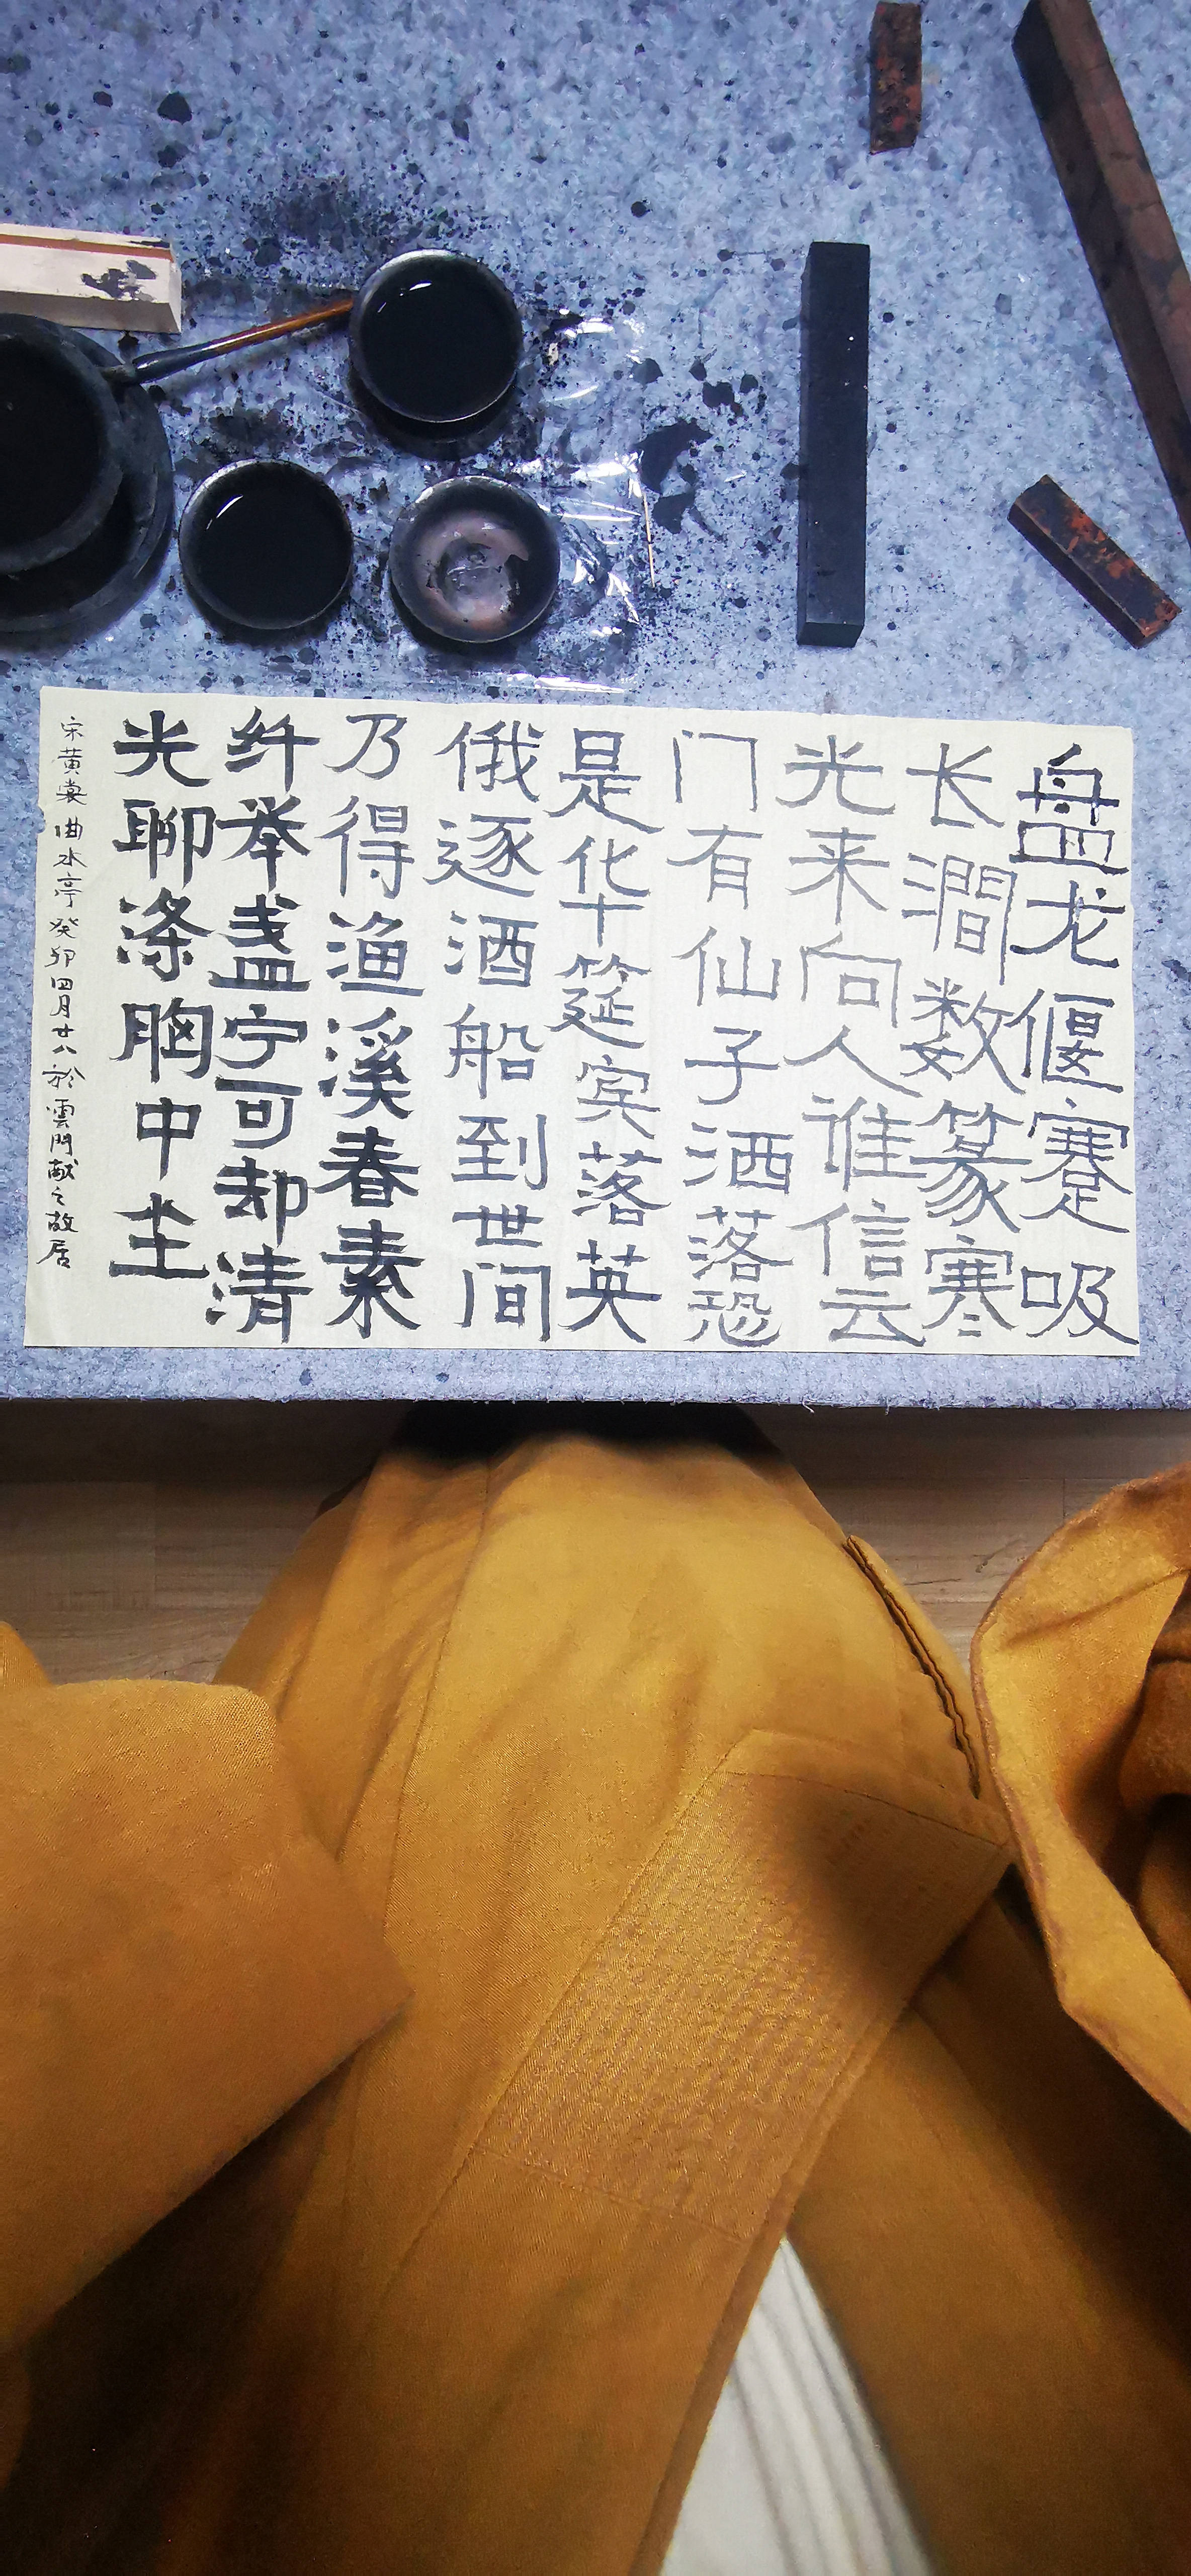 盘龙偃蹇吸
长涧数篆寒
光来向人谁信云
门有仙子洒落恐
是华筵宾落英
俄逐酒船到世间
乃得渔溪春素
纤举盏宁可却清
光聊涤胸中尘
宋黄裳曲水亭癸卯四月廿八於雲門献之故居